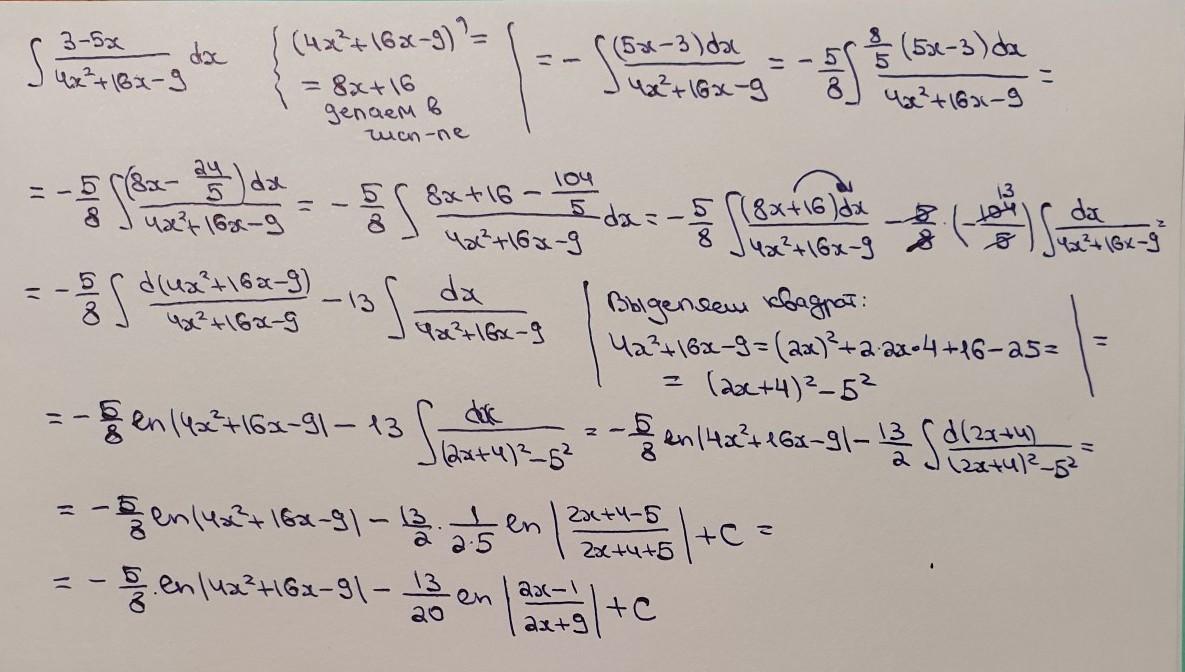 ∫ (3-5x)/(4x²+16x-9) dx { (4x²+16x-9)' = | = - ∫ (5x-3)dx/(4x²+16x-9) = - 5/8 ∫ 8/5 (5x-3)dx/(4x²+16x-9) =
= 8x+16
делаем в
числ-ле
= - 5/8 ∫ (8x - 24/5)dx/(4x²+16x-9) = - 5/8 ∫ (8x+16 - 104/5)/(4x²+16x-9) dx = - 5/8 ∫ (8x+16)dx/(4x²+16x-9) - 5/8 · (- 104/5) 13 ∫ dx/(4x²+16x-9) =
= - 5/8 ∫ d(4x²+16x-9)/(4x²+16x-9) - 13 ∫ dx/(4x²+16x-9) | Выделяем квадрат:
4x²+16x-9 = (2x)²+2·2x·4+16-25 = | =
= (2x+4)² - 5²
= - 5/8 ln|4x²+16x-9| - 13 ∫ dx/((2x+4)²-5²) = - 5/8 ln|4x²+16x-9| - 13/2 ∫ d(2x+4)/((2x+4)²-5²) =
= - 5/8 ln|4x²+16x-9| - 13/2 · 1/(2·5) ln |(2x+4-5)/(2x+4+5)| + C =
= - 5/8 · ln|4x²+16x-9| - 13/20 ln |(2x-1)/(2x+9)| + C